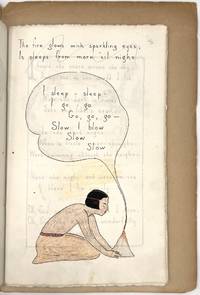 The fire glows with sparkling eyes,
It sleeps from morn til night
I sleep - sleep -
I go, go
Go, go, go -
Slow I blow
Slow
Slow